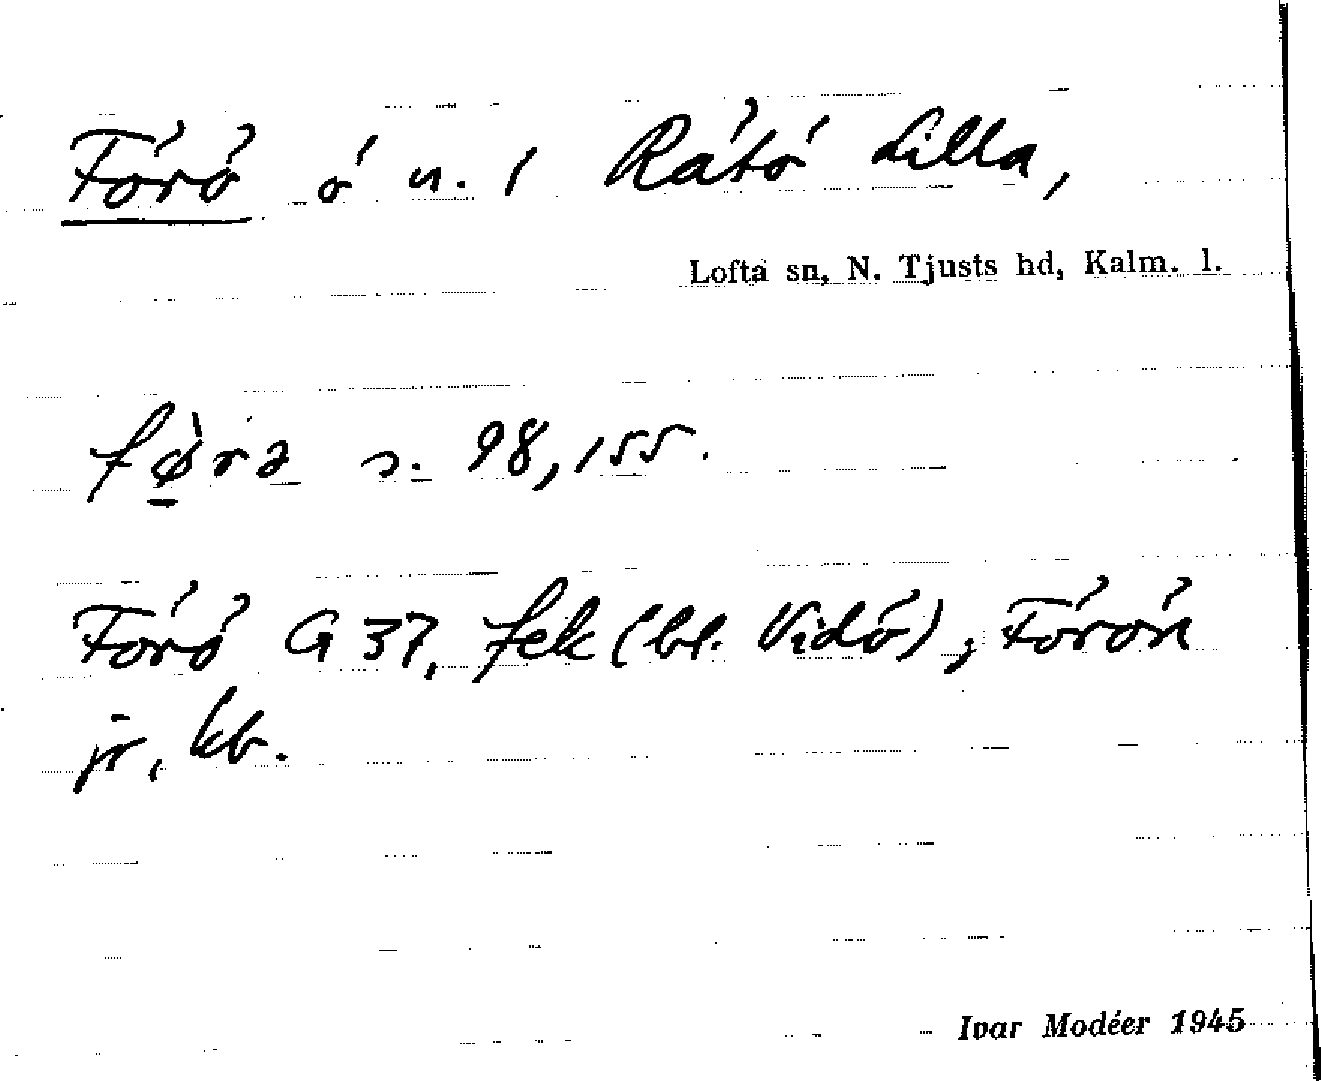 Förö ö n. i Råtö Lilla,
Lofta sn, N. Tjusts hd, Kalm. l.
fø̱̀rə s. 98, 155.
Förö G 37, fek (bl. Vidö), Förön
jr, kb.
Ivar Modéer 1945